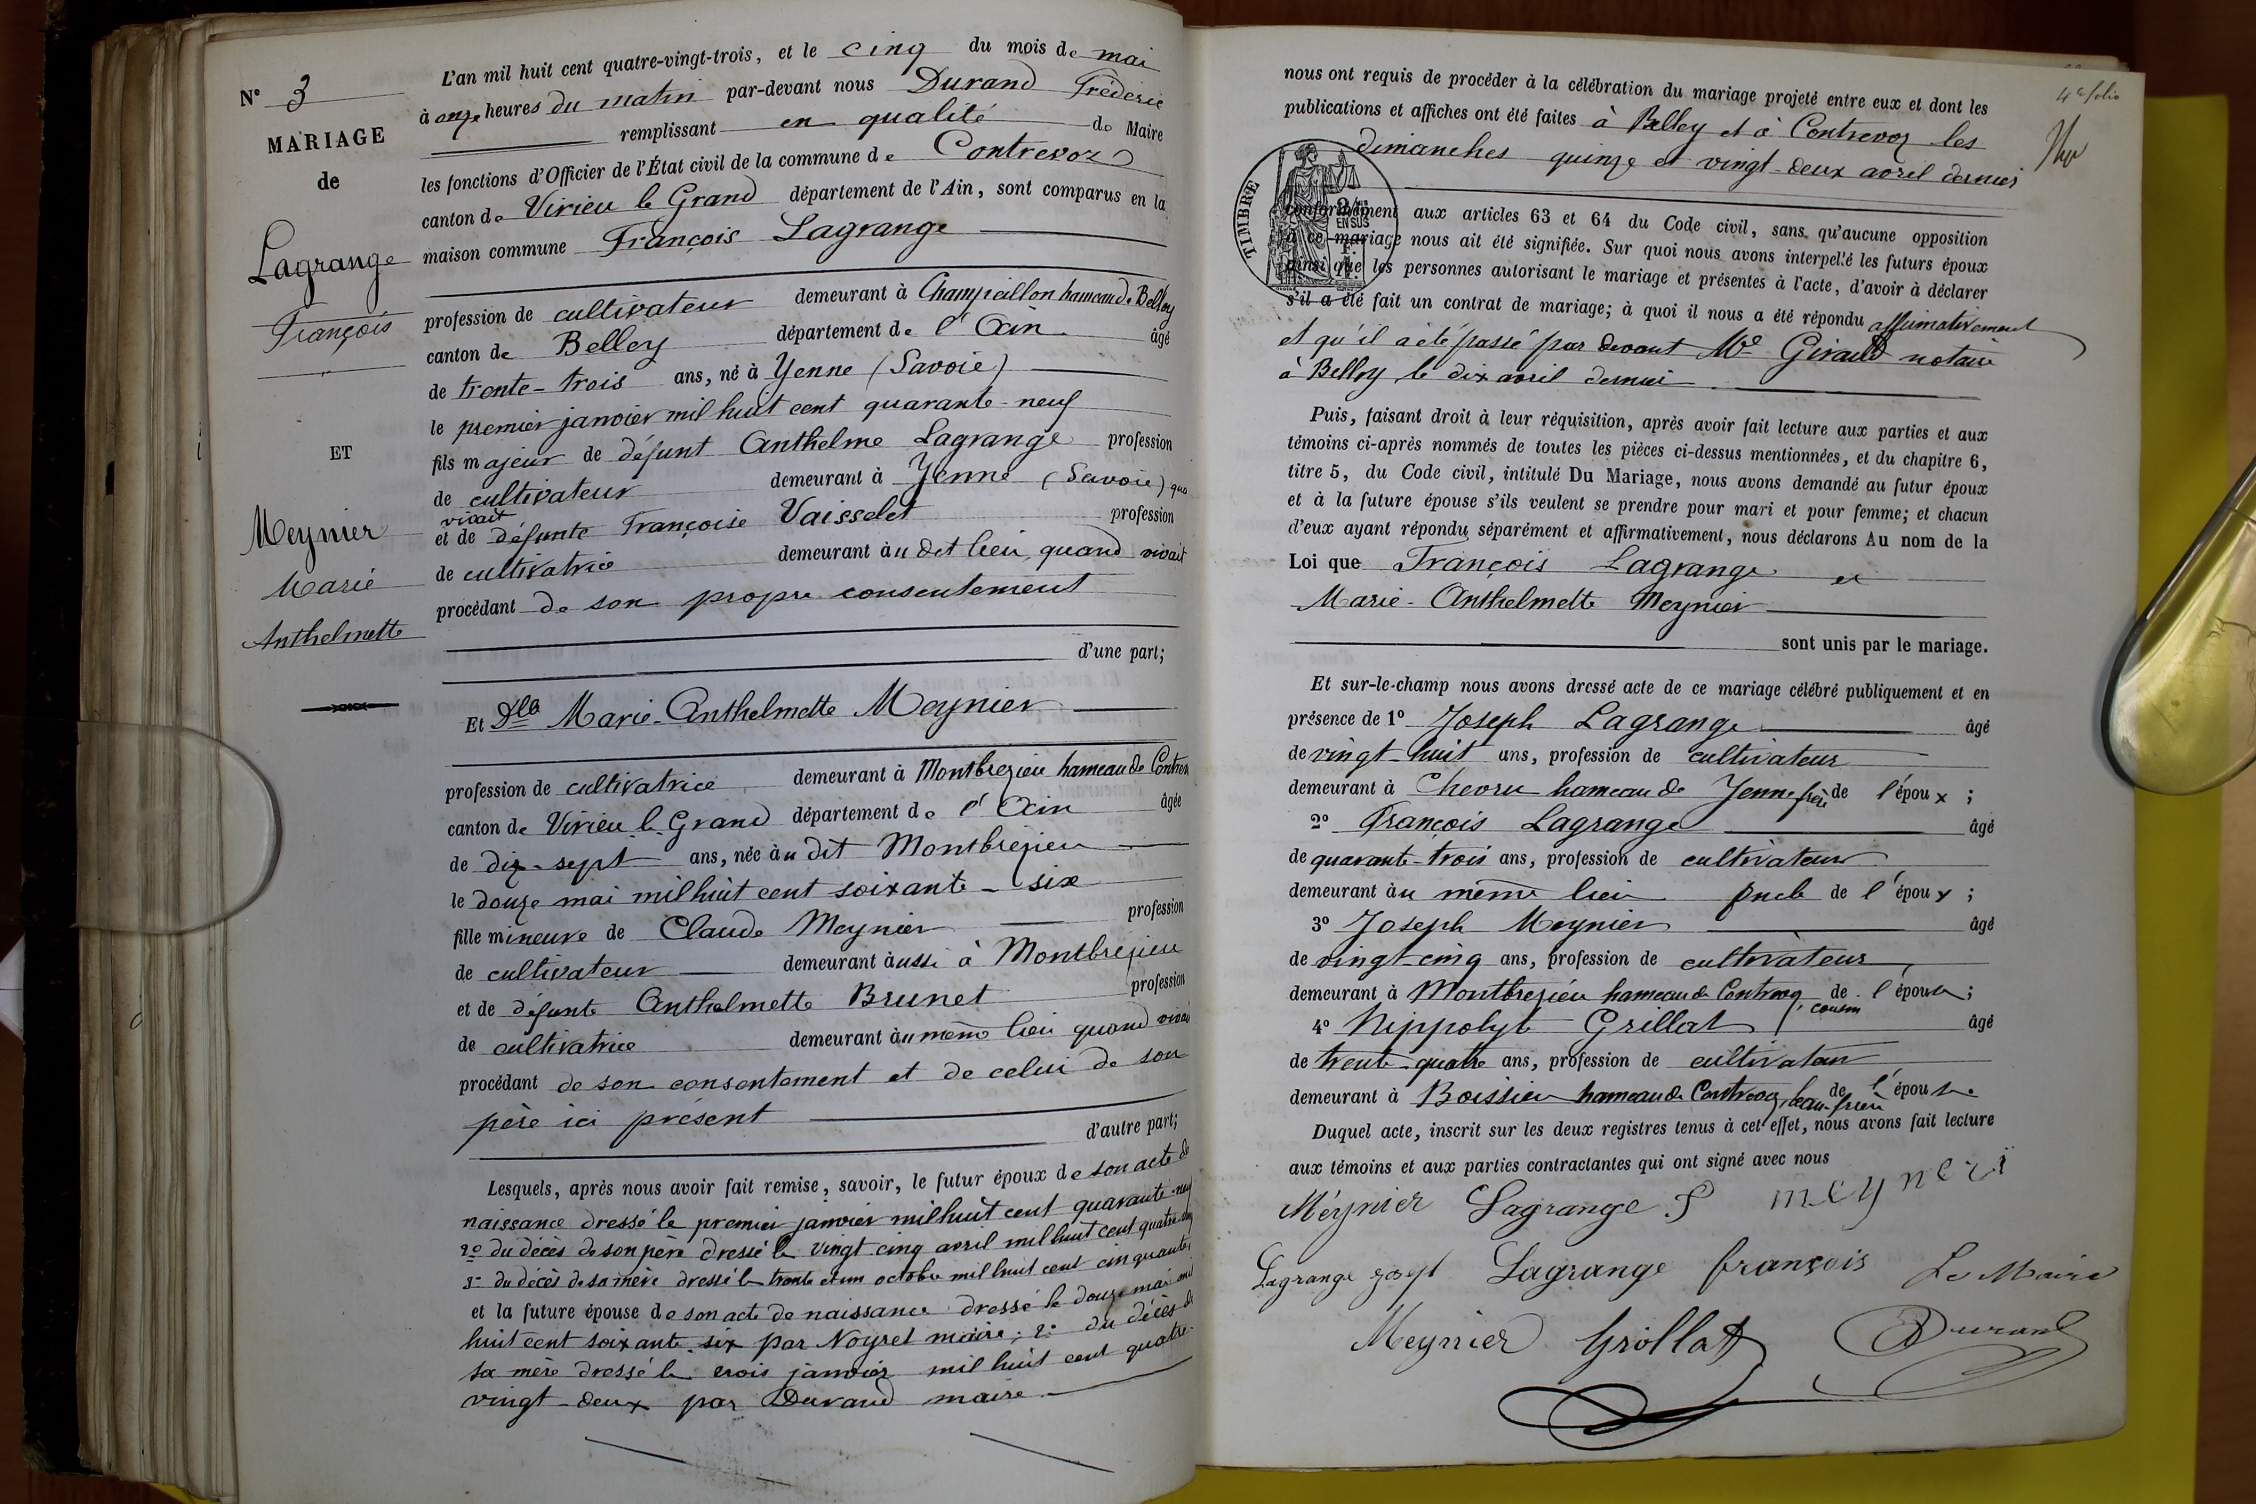 N° 3
MARIAGE
de
Lagrange
François
ET
Meynier
Marie
Anthelmette
L'an mil huit cent quatre-vingt-trois, et le cinq du mois de mai
à onze heures du matin par-devant nous Durand Fréderic
remplissant en qualité de Maire
les fonctions d'Officier de l'État civil de la commune de Contrevoz
canton de Virieu le Grand département de l'Ain, sont comparus en la
maison commune François Lagrange
profession de cultivateur demeurant à Champeillon hameau de Belley
canton de Belley département de l'Ain âgé
de trente-trois ans, né à Yenne (Savoie)
le premier janvier mil huit cent quarante-neuf
fils majeur de défunt Anthelme Lagrange profession
de cultivateur demeurant à Yenne (Savoie) qua
vivait
et de défunte Françoise Vaisselet profession
de cultivatrice demeurant au dit lieu, quand vivait
procédant de son propre consentement
d'une part;
Et Dlle Marie-Anthelmette Meynier
profession de cultivatrice demeurant à Montbrezieu hameau de Contrev
canton de Virieu le Grand département de l'Ain âgée
de dix-sept ans, née au dit Montbrezieu
le douze mai mil huit cent soixante-six
fille mineure de Claude Meynier profession
de cultivateur demeurant aussi à Montbrezieu
et de défunte Anthelmette Brunet profession
de cultivatrice demeurant au même lieu quand vivait
procédant de son consentement et de celui de son
père ici présent
d'autre part;
Lesquels, après nous avoir fait remise, savoir, le futur époux de son acte de
naissance dressé le premier janvier mil huit cent quarante-neuf
2° du décès de son père dressé le vingt cinq avril mil huit cent quatre-ving
3° du décès de sa mère dressé le trente et un octobre mil huit cent cinquante
et la future épouse de son acte de naissance dressé le douze mai mil
huit cent soixante-six par Noyret maire; 2° du décès de
sa mère dressé le trois janvier mil huit cent quatre-
vingt-deux par Durand maire
4e folio
nous ont requis de procéder à la célébration du mariage projeté entre eux et dont les
publications et affiches ont été faites à Belley et à Contrevoz les
dimanches quinze et vingt-deux avril dernier
TIMBRE
2/10es
EN SUS
conformément aux articles 63 et 64 du Code civil, sans qu'aucune opposition
à ce mariage nous ait été signifiée. Sur quoi nous avons interpellé les futurs époux
ainsi que les personnes autorisant le mariage et présentes à l'acte, d'avoir à déclarer
s'il a été fait un contrat de mariage; à quoi il nous a été répondu affirmativement
et qu'il a été passé par devant Me Giraud notaire
à Belley le dix avril dernier
Puis, faisant droit à leur réquisition, après avoir fait lecture aux parties et aux
témoins ci-après nommés de toutes les pièces ci-dessus mentionnées, et du chapitre 6,
titre 5, du Code civil, intitulé Du Mariage, nous avons demandé au futur époux
et à la future épouse s'ils veulent se prendre pour mari et pour femme; et chacun
d'eux ayant répondu séparément et affirmativement, nous déclarons Au nom de la
Loi que François Lagrange et
Marie-Anthelmette Meynier
sont unis par le mariage.
Et sur-le-champ nous avons dressé acte de ce mariage célébré publiquement et en
présence de 1° Joseph Lagrange âgé
de vingt-huit ans, profession de cultivateur
demeurant à Chevru hameau de Yenne frère de l'époux;
2° François Lagrange âgé
de quarante-trois ans, profession de cultivateur
demeurant au même lieu oncle de l'époux;
3° Joseph Meynier âgé
de vingt-cinq ans, profession de cultivateur,
demeurant à Montbrezieu hameau de Contrevoz, cousin de l'épouse;
4° Hippolyte Grillat âgé
de trente-quatre ans, profession de cultivateur
demeurant à Boissieu hameau de Contrevoz, beau-frère de l'épouse
Duquel acte, inscrit sur les deux registres tenus à cet effet, nous avons fait lecture
aux témoins et aux parties contractantes qui ont signé avec nous
Méynier Lagrange F meyneri
Lagrange josept Lagrange françois Le Maire
Meynier Grillat Durand